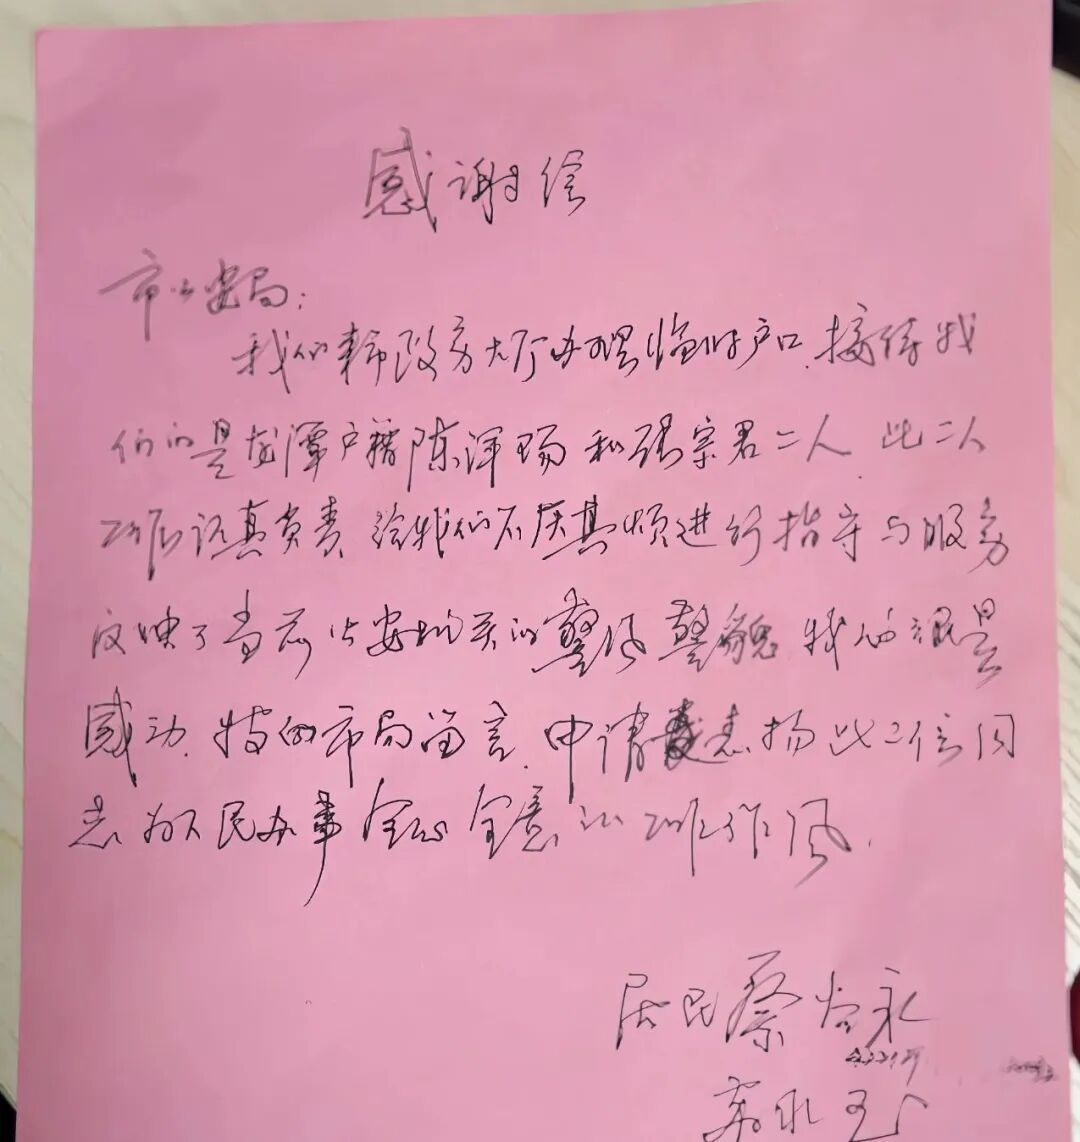 感谢信
市公安局:
我们来政务大厅办理临时户口.接待我
们的是龙潭户籍陈泽
和 宗君二人 此二人
工作认真负责 给我们不厌其烦进行指导与服务
反映了当前公安机关的警风警貌.我们很是
感动.特向市局留言.申请表扬此二位同
志为人民办事全心全意的工作作风.
居民蔡 永
永